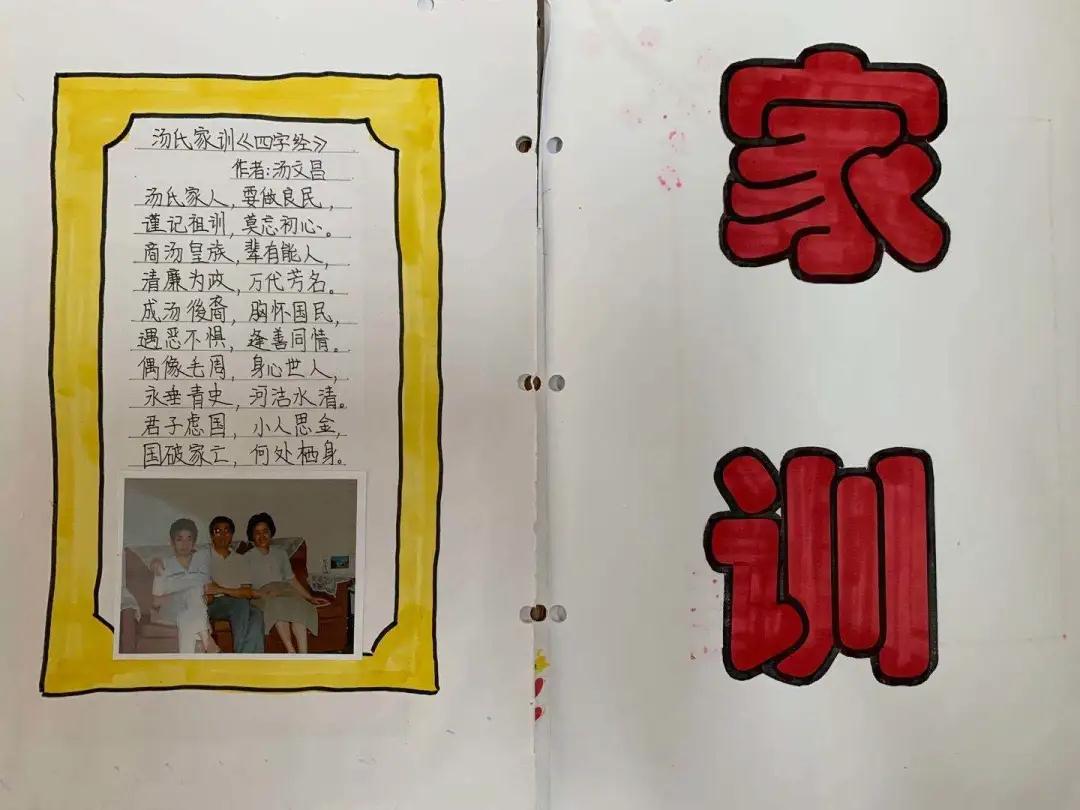 汤氏家训《四字经》
作者:汤文昌
汤氏家人,要做良民,
谨记祖训,莫忘初心。
商汤皇族,辈有能人,
清廉为政,万代芳名。
成汤後裔,胸怀国民,
遇恶不惧,逢善同情。
偶像毛周,身心世人,
永垂青史,河洁水清。
君子虑国,小人思金,
国破家亡,何处栖身。
家
训